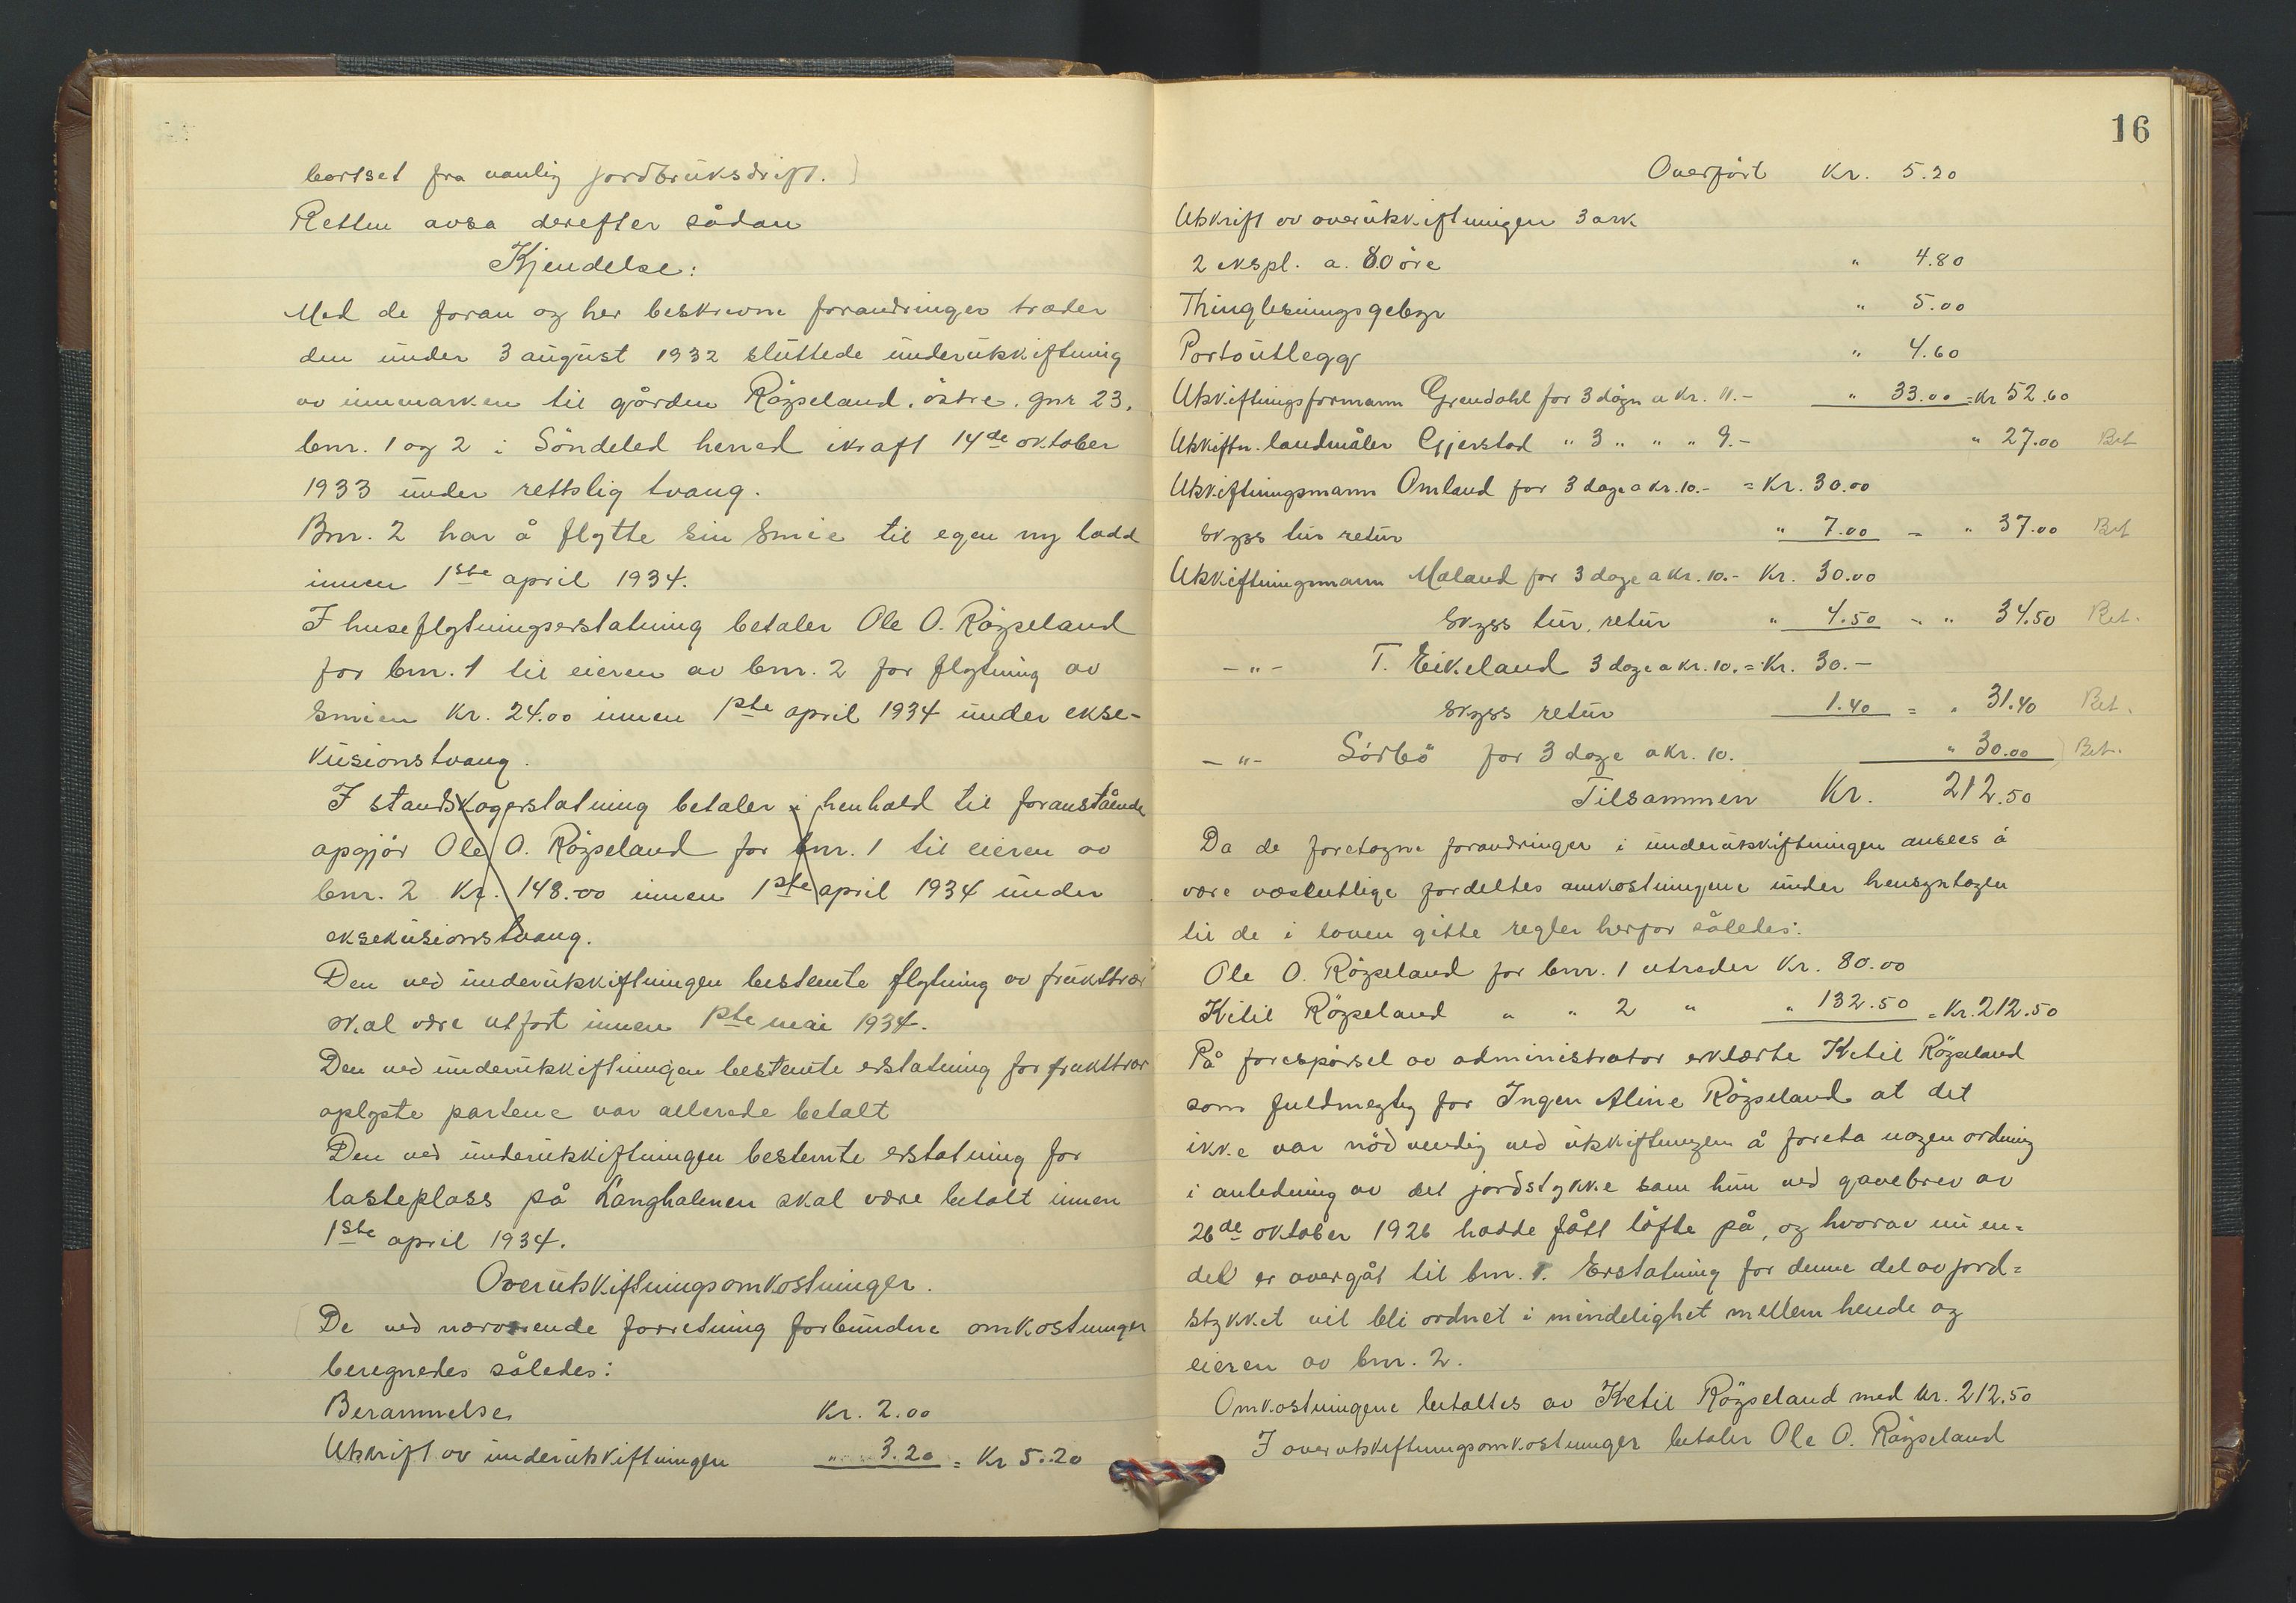 bortset fra vanlig jordbruksdrift.)
Retten avsa derefter sådan
Kjendelse:
Med de foran og her beskrevne forandringer træder
den under 3 august 1932 sluttede underutskiftning
av innmarken til gården Röyseland, östre, gnr 23,
bnr. 1 og 2 i Söndeled herred ikraft 14de oktober
1933 under rettslig tvang.
Bnr. 2 har å flytte sin Smie til egen ny lodd
innen 1ste april 1934.
I huseflytningserstatning betaler Ole O. Röyseland
for bnr. 1 til eieren av bnr. 2 for flytning av
Smien Kr. 24.00 innen 1ste april 1934 under ekse-
kusionstvang.
I standskogerstatning betaler i henhold til foranstående
opgjör Ole O. Röyseland for bnr. 1 til eieren av
bnr. 2 Kr. 148.00 innen 1ste april 1934 under
eksekusionstvang.
Den ved underutskiftningen bestemte flytning av frukttrær
skal være utfört innen 1ste mai 1934.
Den ved underutskiftningen bestemte erstatning for frukttrær
oplyste partene var allerede betalt
Den ved underutskiftningen bestemte erstatning for
lasteplass på Langhalmen skal være betalt innen
1ste april 1934.
Overutskiftningsomkostninger.
De ved nærværende forretning forbundne omkostninger
beregnedes således:
Berammelse Kr. 2.00
Utskrift av underutskiftningen " 3.20 = Kr 5.20
16
Overfört Kr. 5.20
Utskrift av overutskiftningen 3 ark
2 ekspl. a. 80 öre " 4.80
Thinglesningsgebyr " 5.00
Portoutlegg " 4.60
Utskiftningsformann Grendahl for 3 dögn a Kr. 11.- " 33.00 = Kr 52.60
Utskiftn. landmåler Gjerstad " 3 " " " 9.- " 27.00 Bet
Utskiftningsmann Omland for 3 dage a Kr. 10.- = Kr. 30.00
Skyss tur retur " 7.00 = " 37.00 Bet
Utskiftningsmann Maland for 3 dage a Kr. 10.- Kr. 30.00
Skyss tur, retur " 4.50 = " 34.50 Bet.
- " - T. Eikeland 3 dage a kr. 10. = Kr. 30.-
Skyss retur 1.40 = " 31.40 Bet.
- " - Sörbö for 3 dage a Kr. 10. " 30.00 ) Bet.
Tilsammen Kr. 212.50
Da de foretagne forandringer i underutskiftningen ansees å
være væsentlige fordeltes omkostningene under hensyntagen
til de i loven gitte regler herfor således:
Ole O. Röyseland for bnr. 1 utreder Kr. 80.00
Ketil Röyseland " " 2 " " 132.50 = Kr. 212.50
På forespörsel av administrator erklærte Ketil Röyseland
som fuldmegtig for Ingen Aline Röyseland at det
ikke var nödvendig ved utskiftningen å foreta nogen ordning
i anledning av det jordstykke som hun ved gavebrev av
26de oktober 1926 hadde fått löfte på, og hvorav nu en-
del er overgåt til bnr. 1. Erstatning for denne del av jord=
stykket vil bli ordnet i mindelighet mellem hende og
eieren av bnr. 2.
Omkostningene betaltes av Ketil Röyseland med kr. 212.50
I overutskiftningsomkostninger betaler Ole O. Röyseland